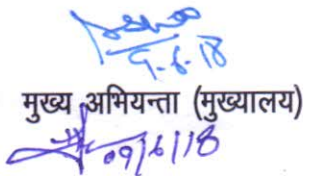 9-6-18
मुख्य अभियन्ता (मुख्यालय)
09/6/18